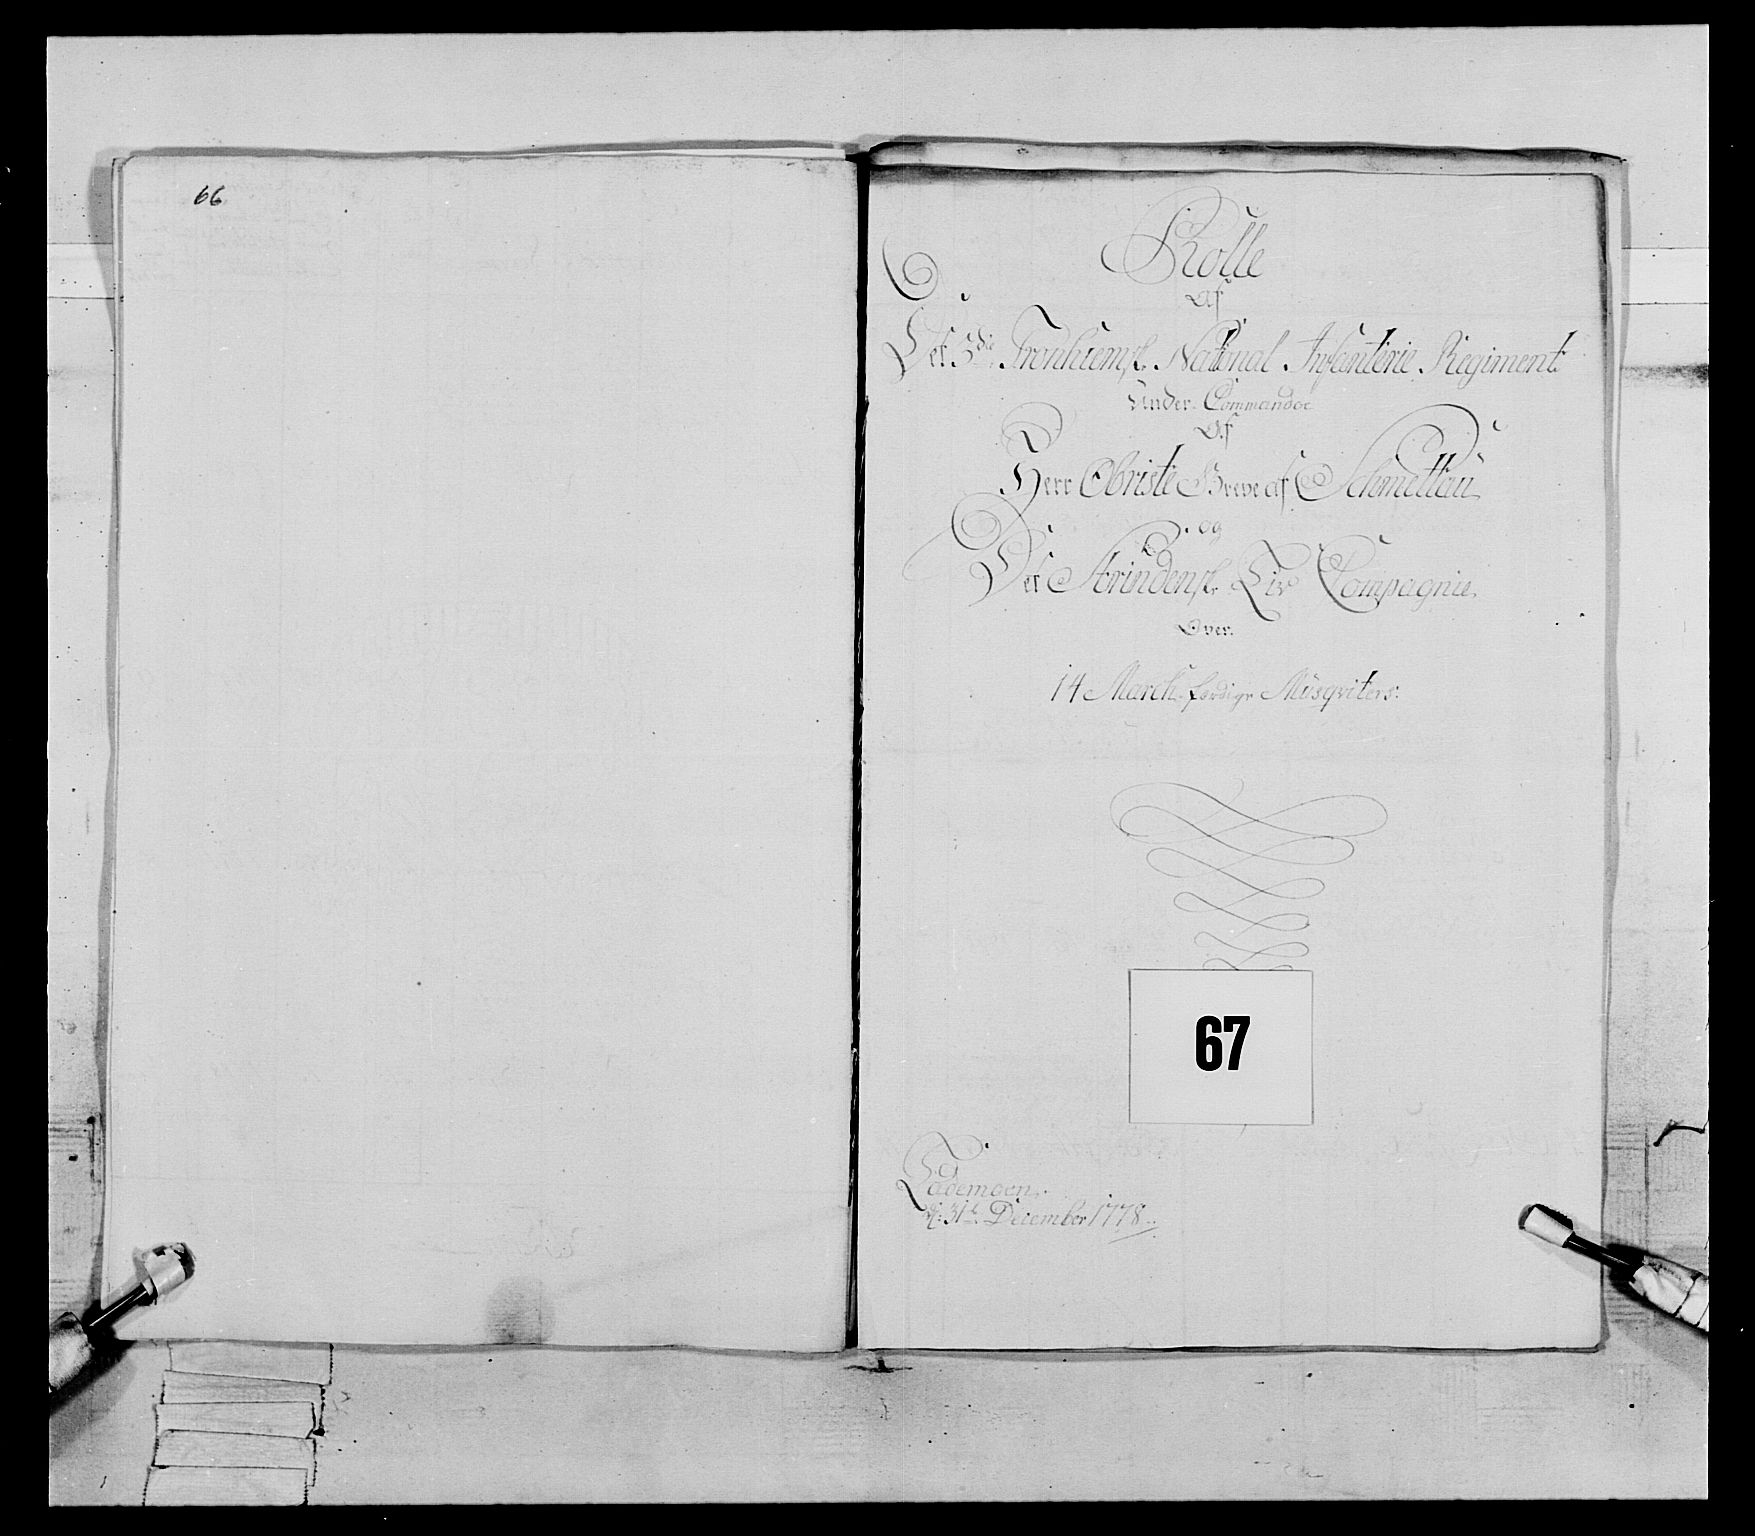 66
Rolle
Af
Det 3die Tronhiemske National Infanterie Regiment
Under Commandoe
Af
Herr Obriste Greve af Schmettau
og
Det Strindenske Liv Compagnie.
Over.
14 March færdige Musqviters:
67
Lademoen.
d: 31te December 1778.